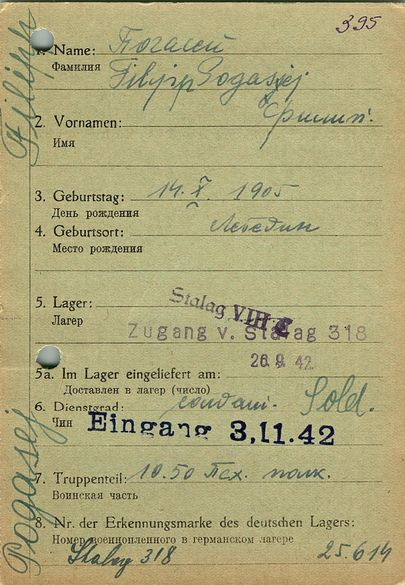 395
1. Name: Погасей
Фамилия Filipp Pogassej
2. Vornamen: Филип.
Имя
3. Geburtstag: 14. X. 1905
День рождения
4. Geburtsort: Лебедин
Место рождения
Stalag VIII
5. Lager:
Лагер
Zugang v. Stalag 318
26.9.42
5a. Im Lager eingeliefert am:
Доставлен в лагер (число)
6. Dienstgrad: Sold.
Чин
Eingang 3.11.42
7. Truppenteil: 10.50 полк.
Воинская часть
8. Nr. der Erkennungsmarke des deutschen Lagers:
Номер военнопленного в германском лагере
Stalag 318 25614
Filipp
Pogasej